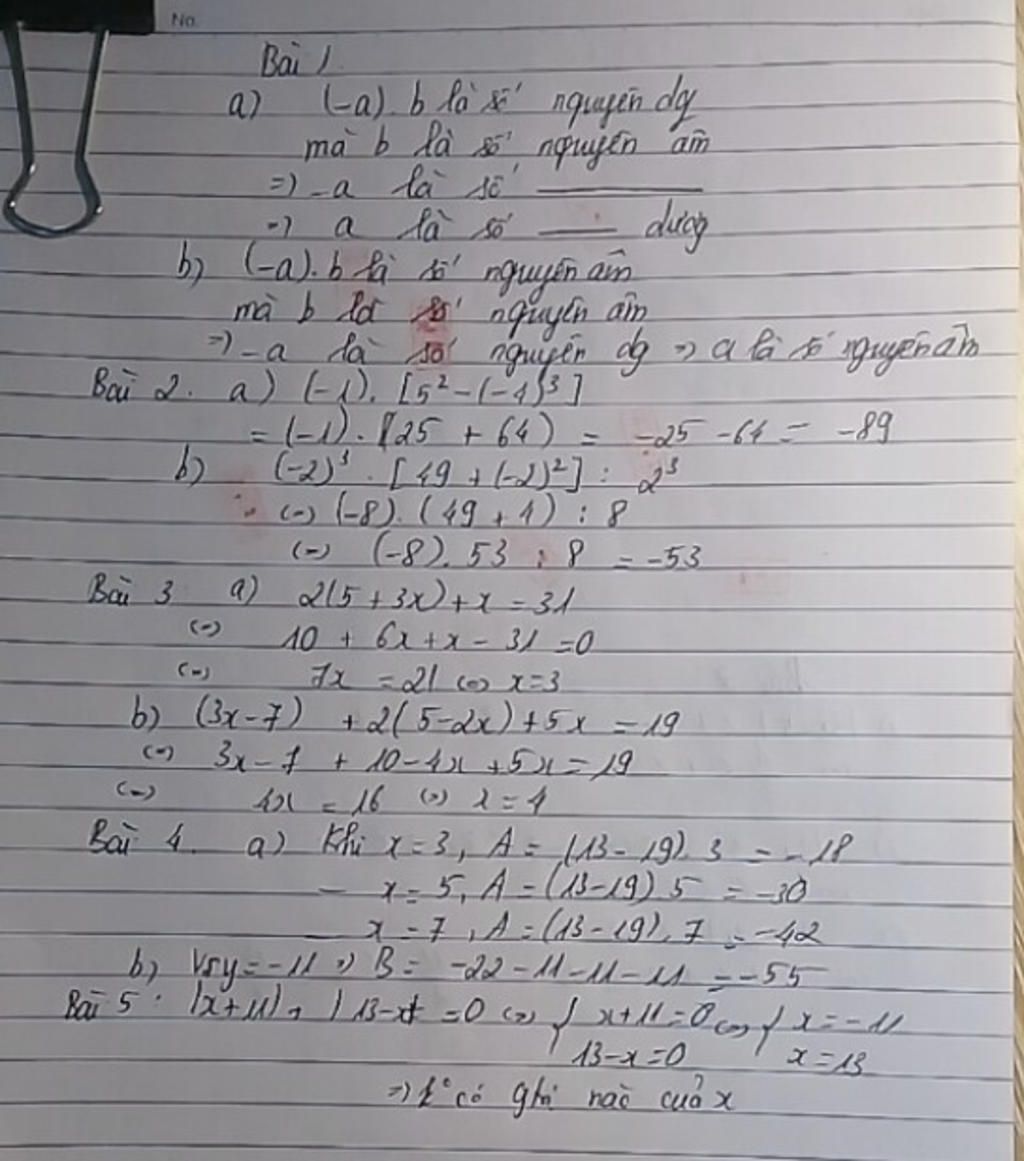 No.
Bài 1
a) (-a). b là số nguyên dg
mà b là số nguyên âm
=) -a là số ————
=) a là số —— dương
b) (-a). b là số nguyên âm
mà b là số nguyên âm
=) -a là số nguyên dg => a là số nguyên âm
Bài 2. a) (-1). [5² - (-4)³]
= (-1). (25 + 64) = -25 - 64 = -89
b) (-2)³. [49 + (-2)²] : 2³
(=) (-8). (49 + 4) : 8
(=) (-8). 53 : 8 = -53
Bài 3 a) 2(5 + 3x) + x = 31
(=) 10 + 6x + x - 31 = 0
(=) 7x = 21 (=) x = 3
b) (3x - 7) + 2(5 - 2x) + 5x = 19
(=) 3x - 7 + 10 - 4x + 5x = 19
(=) 4x = 16 (=) x = 4
Bài 4. a) Khi x = 3, A = (13 - 19). 3 = -18
— x = 5, A = (13 - 19) 5 = -30
— x = 7, A = (13 - 19). 7 = -42
b) Với y = -11 => B = -22 - 11 - 11 - 11 = -55
Bài 5: |x + 11| + |13 - x| = 0 (=) { x + 11 = 0 (=) { x = -11
13 - x = 0 x = 13
=) k° có gtrị nào của x